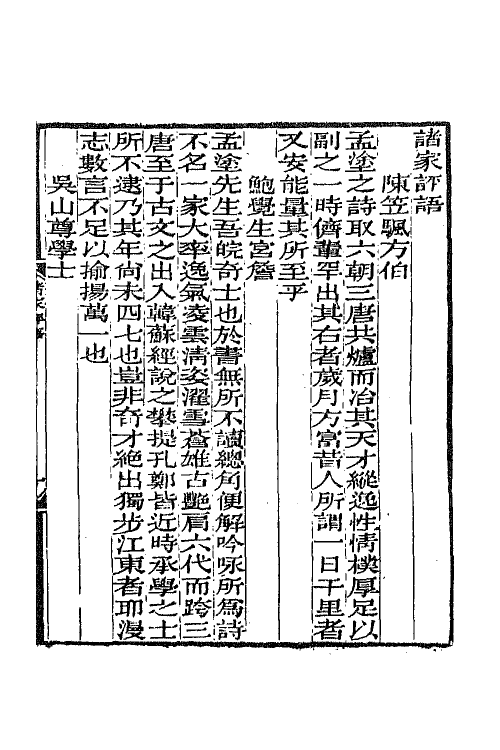 諸家評語
陳笠颿方伯
孟塗之詩取六朝三唐共爐而冶其天才縱逸性情樸厚足以
副之一時儕輩罕出其右者歲月方富昔人所謂一日千里者
又安能量其所至乎
鮑覺生宮詹
孟塗先生吾皖奇士也於書無所不讀總角便解吟咏所爲詩
不名一家大率逸氣凌雲淸姿濯雪蒼雄古艷肩六代而跨三
唐至于古文之出入韓蘇經說之攀提孔鄭皆近時承學之士
所不逮乃其年尙未四七也豈非奇才絕出獨步江東者耶漫
志數言不足以揄揚萬一也
吳山尊學士